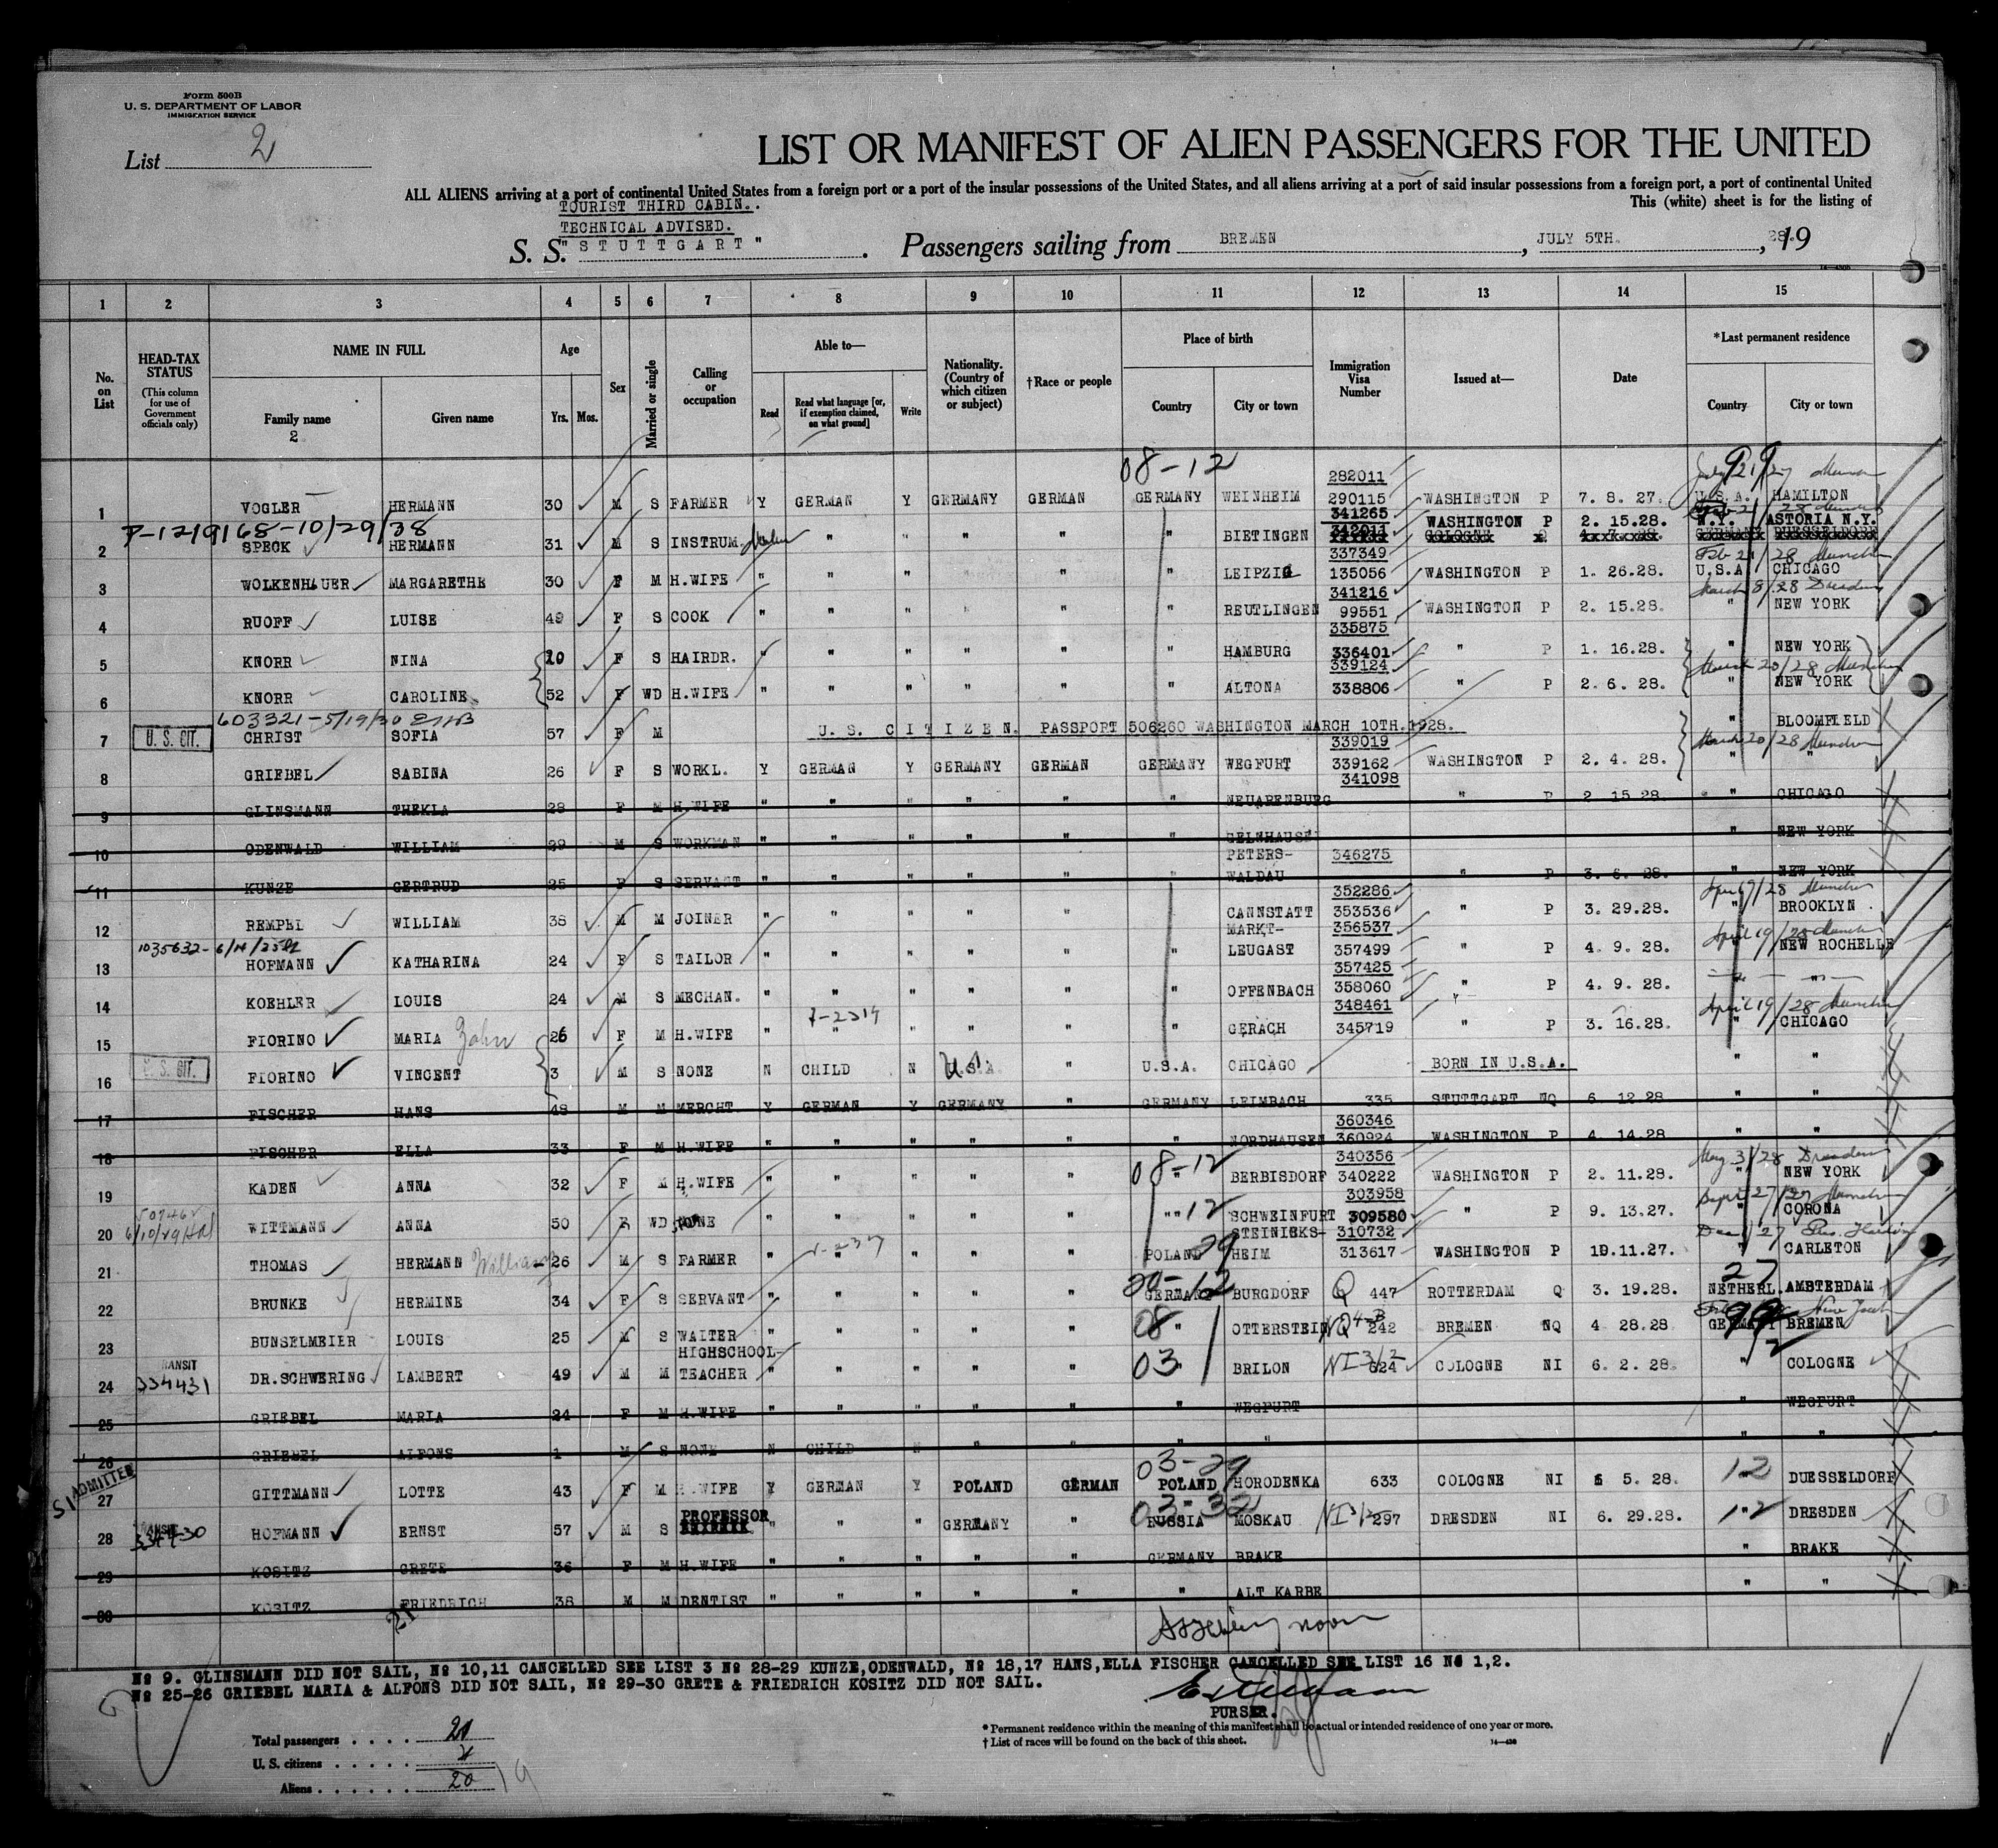 Form 500B
U. S. DEPARTMENT OF LABOR
IMMIGRATION SERVICE
List 2
LIST OR MANIFEST OF ALIEN PASSENGERS FOR THE UNITED
ALL ALIENS arriving at a port of continental United States from a foreign port or a port of the insular possessions of the United States, and all aliens arriving at a port of said insular possessions from a foreign port, a port of continental United
This (white) sheet is for the listing of
TOURIST THIRD CABIN.
TECHNICAL ADVISED.
S. S. "STUTTGART". Passengers sailing from BREMEN, JULY 5TH., 1928.
1 2 3 4 5 6 7 8 9 10 11 12 13 14 15
No. on List
HEAD-TAX STATUS
(This column for use of Government officials only)
NAME IN FULL
Family name
2
Given name
Age
Yrs. Mos.
Sex
Married or single
Calling or occupation
Able to—
Read
Read what language [or, if exemption claimed, on what ground]
Write
Nationality. (Country of which citizen or subject)
†Race or people
Place of birth
Country City or town
Immigration Visa Number
Issued at—
Date
*Last permanent residence
Country City or town
08-12
282011
1 VOGLER HERMANN 30 M S FARMER Y GERMAN Y GERMANY GERMAN GERMANY WEINHEIM 290115 WASHINGTON P 7. 8. 27. U.S.A. HAMILTON
7-1219168-10/29/38
341265
2 SPECK HERMANN 31 M S INSTRUM. " " " " " " BIETINGEN 342011 WASHINGTON P 2. 15.28. N.Y. ASTORIA N.Y.
337349
3 WOLKENHAUER MARGARETHE 30 F M H.WIFE " " " " " " LEIPZIG 135056 WASHINGTON P 1. 26.28. U.S.A CHICAGO
341216
4 RUOFF LUISE 49 F S COOK " " " " " " REUTLINGEN 99551 WASHINGTON P 2. 15.28. " NEW YORK
335875
5 KNORR NINA 10 F S HAIRDR. " " " " " " HAMBURG 336401 " P 1. 16.28. " NEW YORK
339124
6 KNORR CAROLINE 52 F WD H.WIFE " " " " " " ALTONA 338806 " P 2. 6. 28. " NEW YORK
603321-5/19/30
7 U. S. CIT. CHRIST SOFIA 57 F M U.S. CITIZEN. PASSPORT 506260 WASHINGTON MARCH 10TH.1928. " BLOOMFIELD
339019
8 GRIEBEL SABINA 26 F S WORKL. Y GERMAN Y GERMANY GERMAN GERMANY WEGFURT 339162 WASHINGTON P 2. 4. 28. " "
341098
9 GLINSMANN THEKLA 28 F M H.WIFE " " " " " " NEUARENBURG " P 2 15 28. " CHICAGO
10 ODENWALD WILLIAM 29 M S WORKMAN " " " " " " GELNHAUSE " NEW YORK
PETERS- 346275
11 KUNZE GERTRUD 25 F S SERVANT " " " " " " WALDAU " P 3. 6. 28. " NEW YORK
352286
12 REMPEL WILLIAM 38 M M JOINER " " " " " " CANNSTATT 353536 " P 3. 29.28. " BROOKLYN
1035632-6/14/35
MARKT- 356537
13 HOFMANN KATHARINA 24 F S TAILOR " " " " " " LEUGAST 357499 " P 4. 9. 28. " NEW ROCHELLE
357425
14 KOEHLER LOUIS 24 M S MECHAN. " " " " " " OFFENBACH 358060 " P 4. 9. 28. " "
348461
15 FIORINO MARIA Zahn 26 F M H.WIFE " " " " " " GERACH 345719 " P 3. 16.28. " CHICAGO
16 U. S. CIT. FIORINO VINCENT 3 M S NONE N CHILD N U.S.A. " U.S.A. CHICAGO BORN IN U.S.A. " "
17 FISCHER HANS 48 M M MERCHT. Y GERMAN Y GERMANY " GERMANY LEIMBACH 335 STUTTGART NQ 6. 12.28 " "
360346
18 FISCHER ELLA 33 F M H.WIFE " " " " " " NORDHAUSEN 360924 WASHINGTON P 4. 14.28 " "
08-12
340356
19 KADEN ANNA 32 F M H.WIFE " " " " " " BERBISDORF 340222 WASHINGTON P 2. 11.28. " NEW YORK
303958
20 WITTMANN ANNA 50 F WD NONE " " " " " " SCHWEINFURT 309580 " P 9. 13.27. " CORONA
STEINIEKS- 310732
21 THOMAS HERMANN William 26 M S FARMER " " " " " POLAND HEIM 313617 WASHINGTON P 10.11.27. " CARLETON
22 BRUNKE HERMINE 34 F S SERVANT " " " " " GERMANY BURGDORF Q 447 ROTTERDAM Q 3. 19.28. NETHERL. AMSTERDAM
23 BUNSELMEIER LOUIS 25 M S WAITER " " " " " 08 " OTTERSTEIN 242 BREMEN NQ 4 28.28 GERMANY BREMEN
HIGHSCHOOL-
24 TRANSIT 334431 DR.SCHWERING LAMBERT 49 M M TEACHER " " " " " 03 " BRILON NI 3/2 624 COLOGNE NI 6. 2. 28. " COLOGNE
25 GRIEBEL MARIA 24 F M H.WIFE " " " " " " WEGFURT " WEGFURT
26 GRIEBEL ALFONS 1 M S NONE N CHILD N " " " " " "
03-29
27 ADMITTED GITTMANN LOTTE 43 F M H.WIFE Y GERMAN Y POLAND GERMAN POLAND HORODENKA 633 COLOGNE NI 6 5. 28. 12 DUESSELDORF
PROFESSOR 03-32
28 HOFMANN ERNST 57 M S " " " GERMANY " RUSSIA MOSKAU NI 3/2 297 DRESDEN NI 6. 29.28. DRESDEN
29 KOSITZ GRETE 36 F M H.WIFE " " " " " GERMANY BRAKE " BRAKE
30 KOSITZ FRIEDRICH 38 M M DENTIST " " " " " " ALT KARBE " "
21
№ 9. GLINSMANN DID NOT SAIL, № 10,11 CANCELLED SEE LIST 3 № 28-29 KUNZE,ODENWALD, № 18,17 HANS,ELLA FISCHER CANCELLED SEE LIST 16 № 1,2.
№ 25-26 GRIEBEL MARIA & ALFONS DID NOT SAIL, № 29-30 GRETE & FRIEDRICH KOSITZ DID NOT SAIL.
PURSER.
*Permanent residence within the meaning of this manifest shall be actual or intended residence of one year or more.
†List of races will be found on the back of this sheet.
14—430
Total passengers . . . . 21
U. S. citizens . . . . .
Aliens . . . . . . 20 19